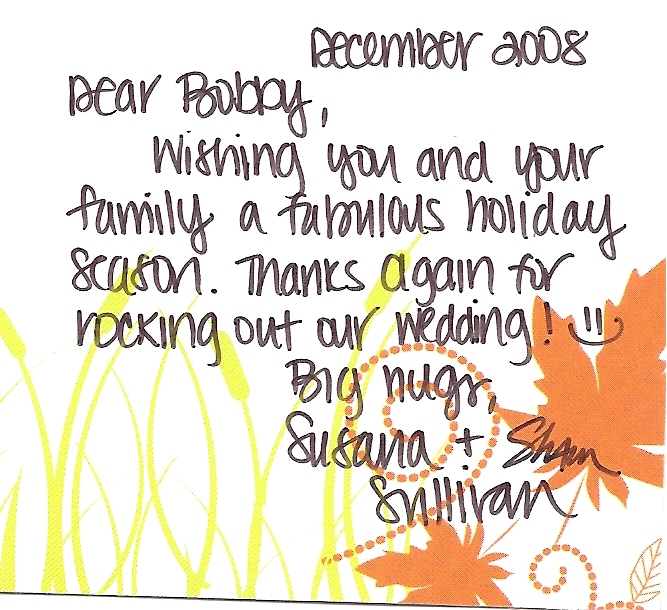 December 2008
Dear Bobby,
Wishing you and your
family a fabulous holiday
season. Thanks again for
rocking out our wedding! :)
Big hugs,
Susana + Shawn
Sullivan